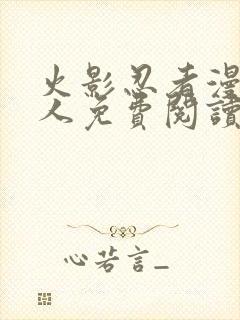 火影忍者漫
人免費閱讀
心若言_